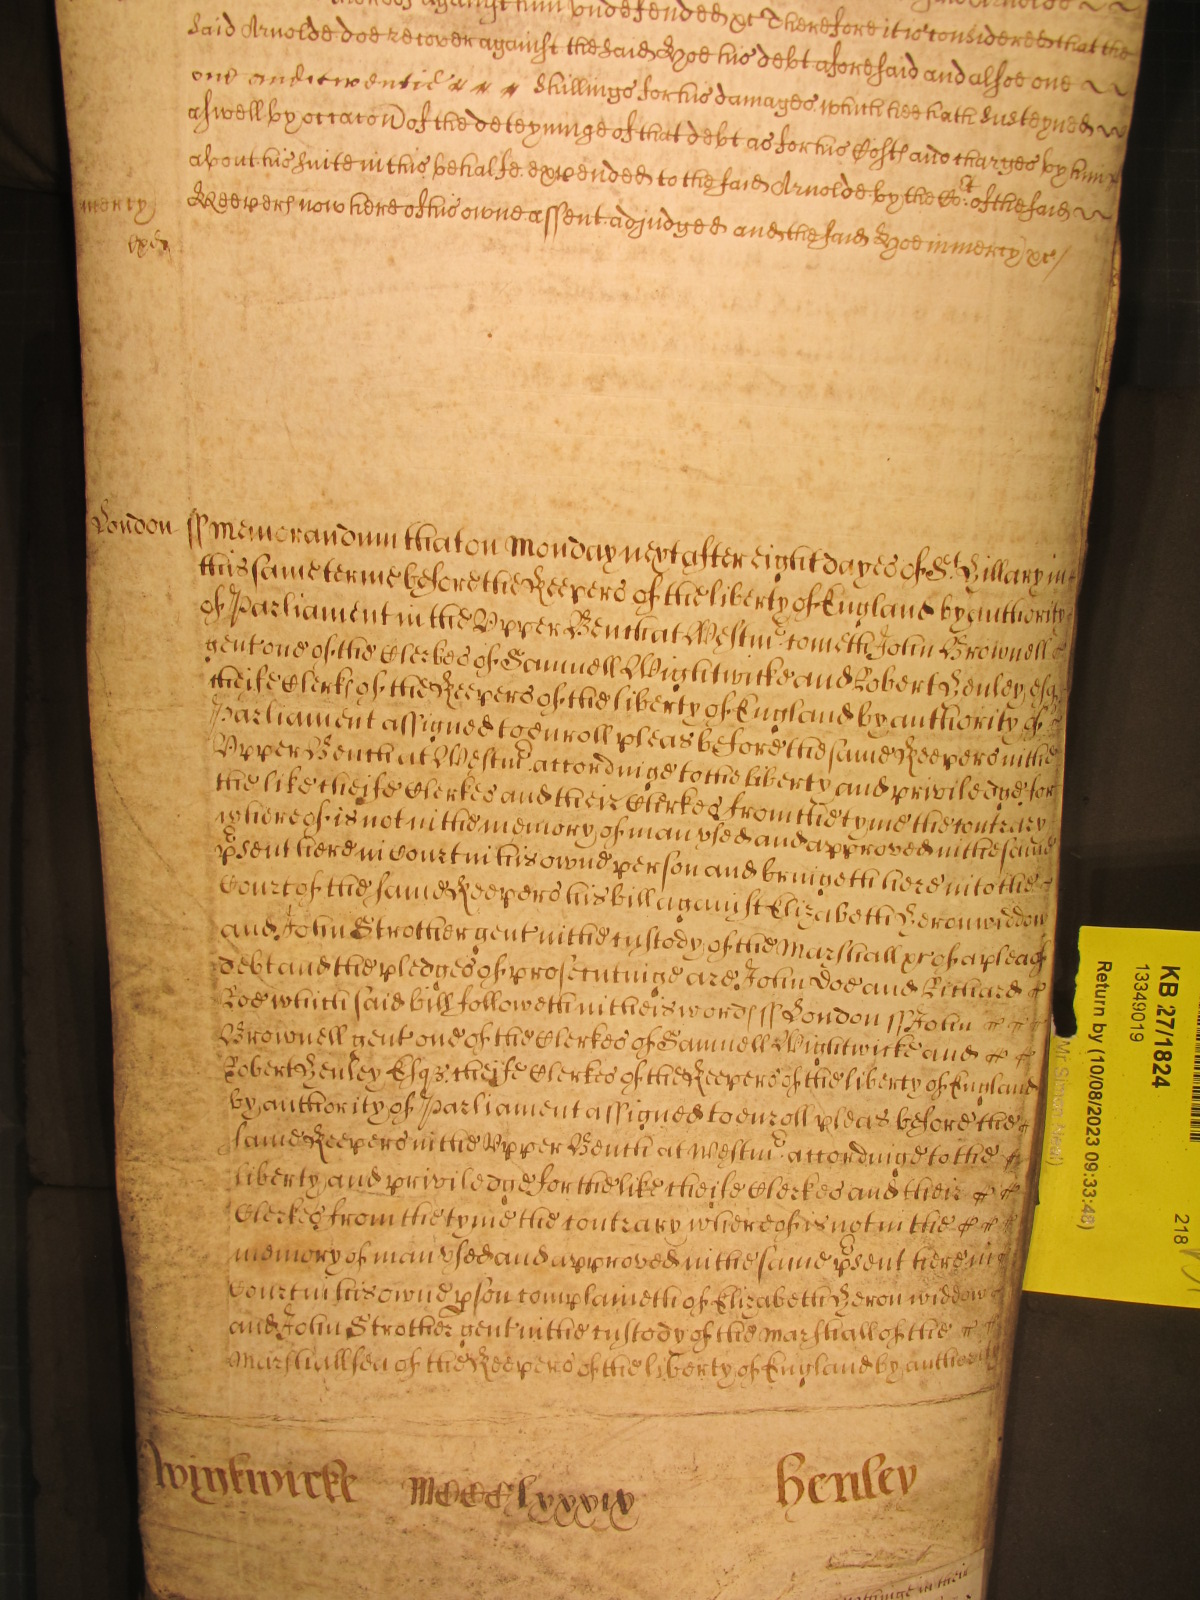 thereof against him undefended &c Therefore it is considered that the
said Arnolde doe recover against the said Roe his debt aforesaid and alsoe one
one and twentie shillings for his damages which hee hath susteyned
aswell by occacon of the deteyninge of that debt as for his Costs and charges by him
about his suite in this behalfe expended to the said Arnolde by the Cort of the said
mercy Keepers now here of his owne assent adjudged and the said Roe in mercy &c
London ss Memorandum that on Monday next after eight dayes of St Hillary in
this same terme before the Keepers of the liberty of England by authority
of Parliament in the Upper Bench at Westmr cometh John Brownell
gent one of the Clerkes of Samuell Wightwicke and Robert Henley esqs
cheife Clerks of the Keepers of the liberty of England by authority of
Parliament assigned to enroll pleas before the same Keepers in the
Upper Bench at Westmr accordinge to the liberty and priviledge for
the like cheife Clerkes and their Clerkes from the tyme the contrary
whereof is not in the memory of man used and approved in the same
psent here in Court in his owne person and bringeth here into the
Court of the same Keepers his bill against Elizabeth Heron widdow
and John Strother gent in the custody of the Marshall &c of a plea of
debt and the pledges of prosecutinge are John Doe and Richard
Roe which said bill followeth in theis words ss London ss John
Brownell gent one of the Clerkes of Samuell Wightwicke and
Robert Henley Esqs cheife Clerkes of the Keepers of the liberty of England
by authority of Parliament assigned to enroll pleas before the
same Keepers in the Upper Bench at Westmr accordinge to the
liberty and priviledge for the like cheife Clerkes and their
Clerkes from the tyme the contrary whereof is not in the
memory of man used and approved in the same psent here in
Court in his owne pson complaineth of Elizabeth Heron widdow
and John Strother gent in the custody of the Marshall of the
Marshallsea of the Keepers of the liberty of England by authority
Wightwicke MCCClxxxix Henley
in their
KB 27/1824
13349019
Return by (10/08/2023 09:33:48)
218